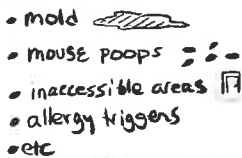 • mold
• mouse poops
• inaccessible areas
• allergy triggers
• etc